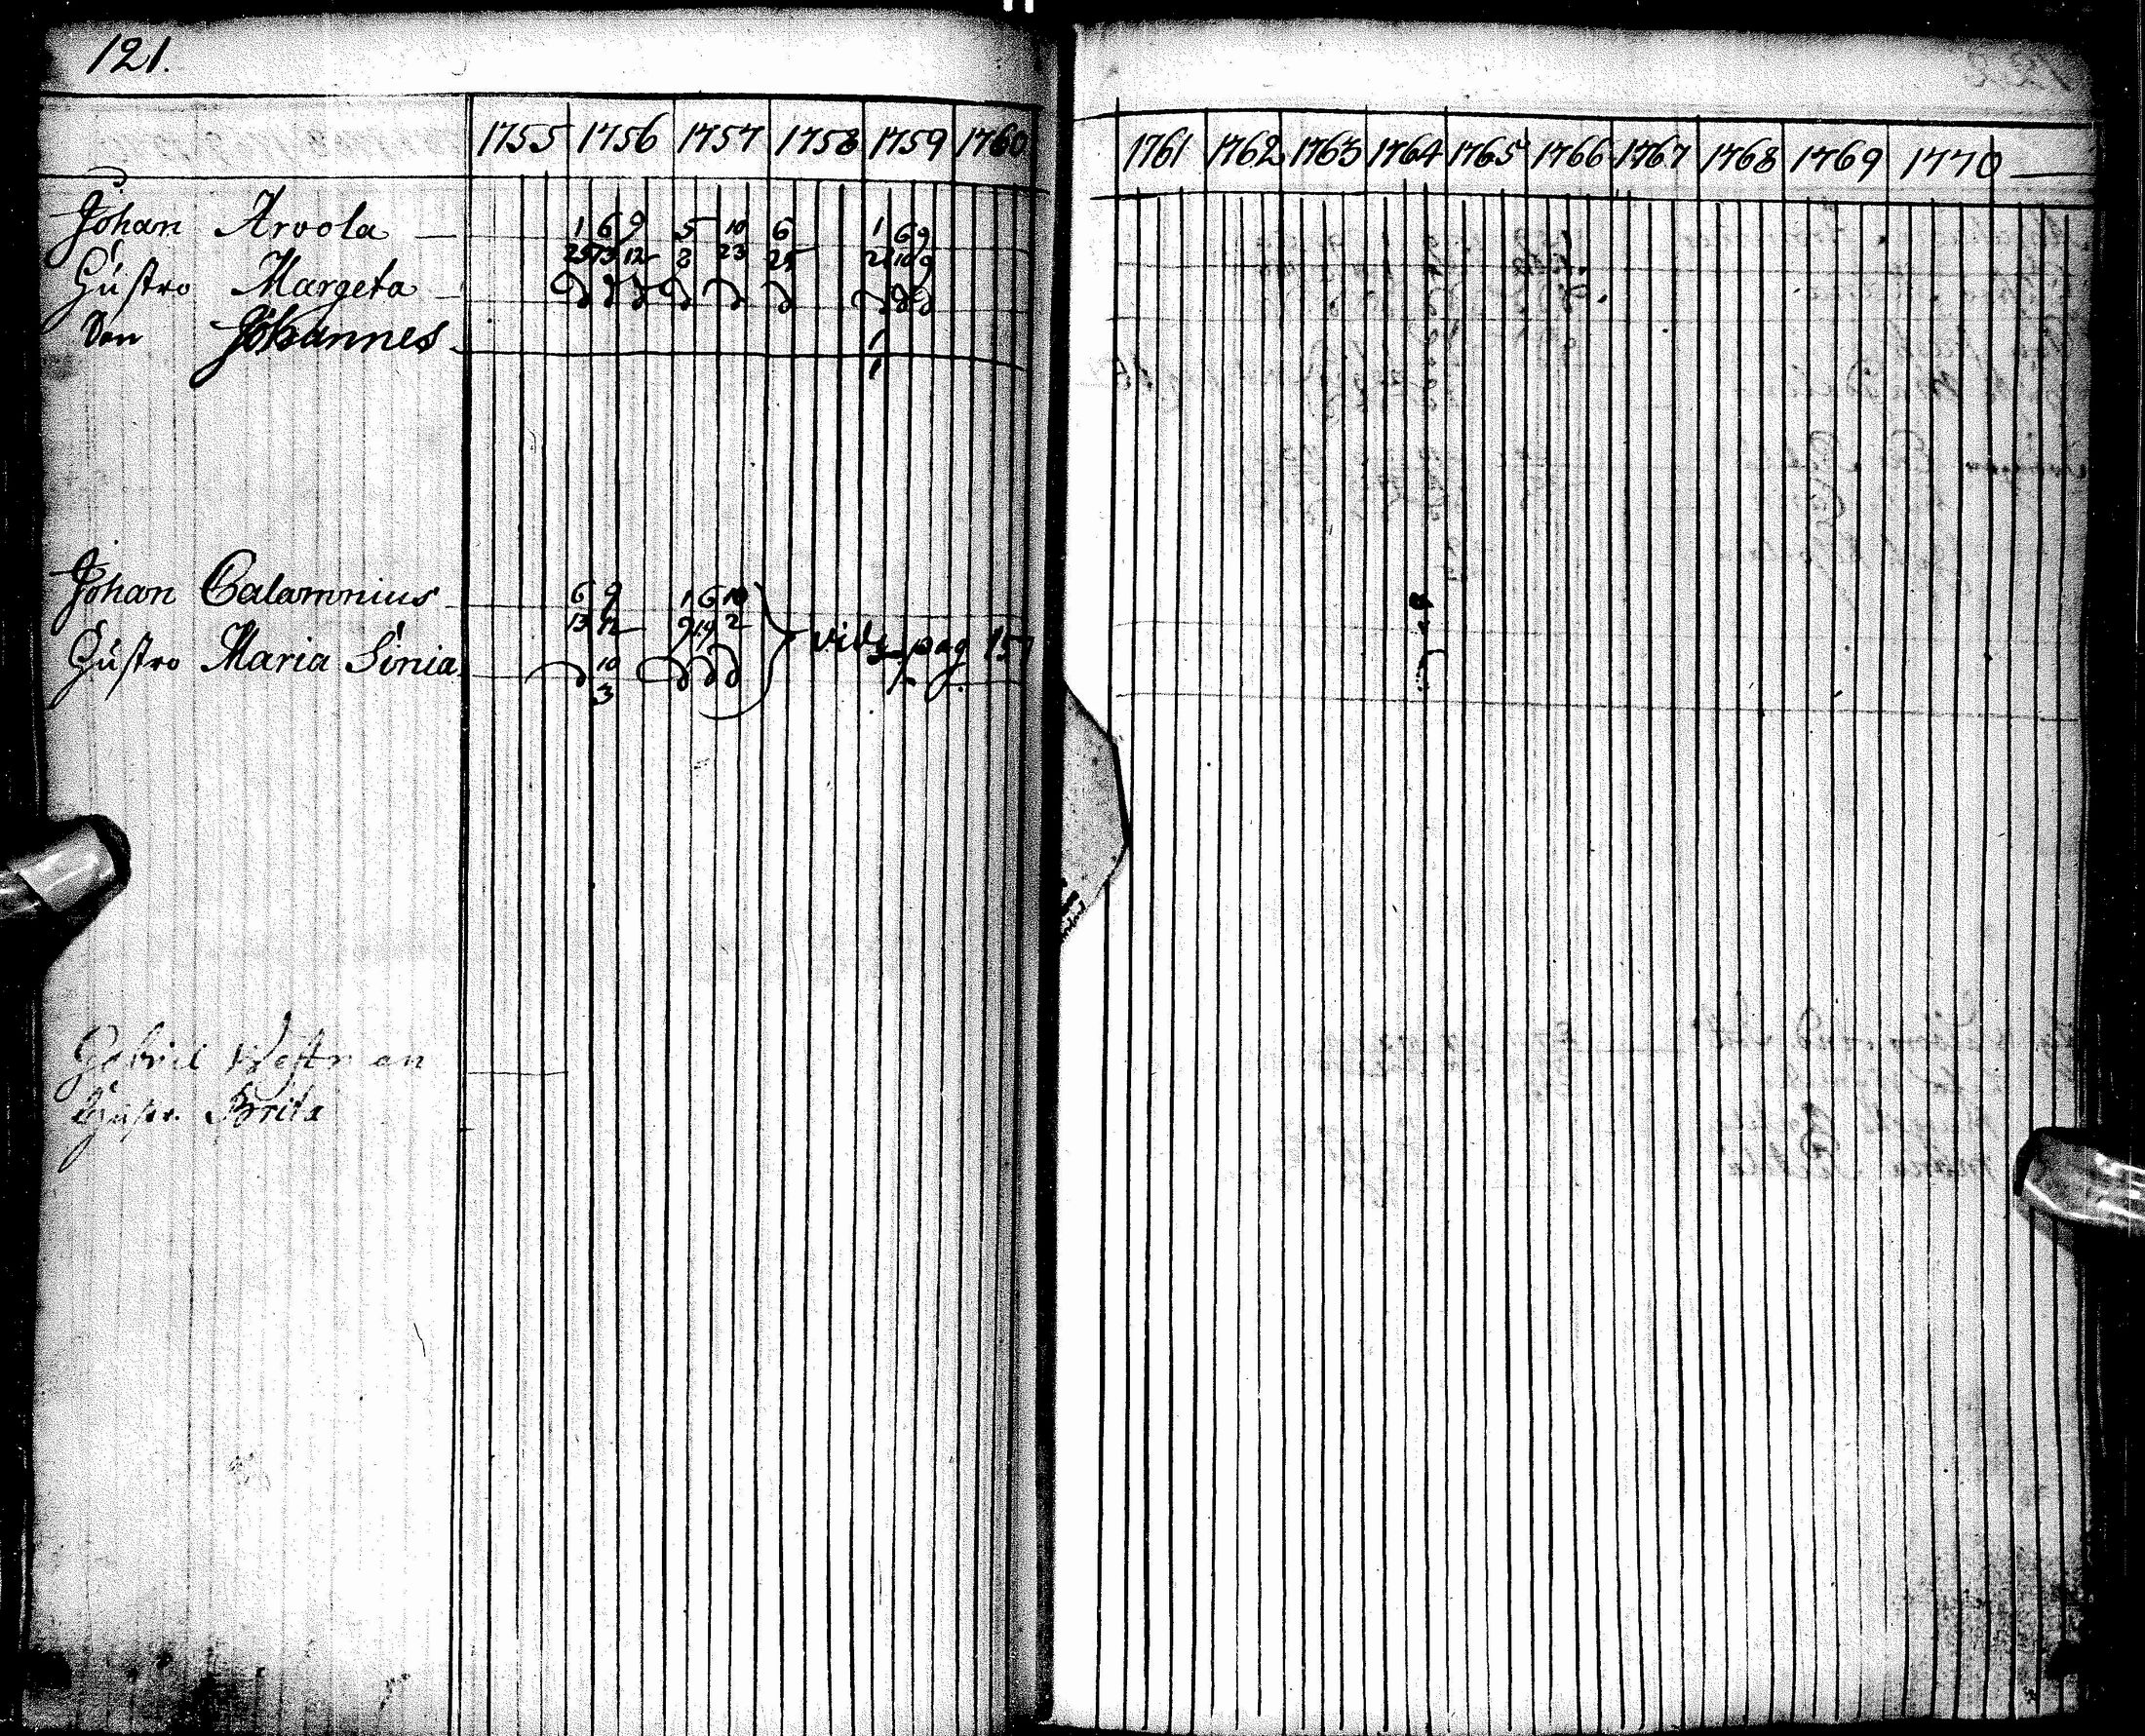 121.
1755 1756 1757 1758 1759 1760 1761 1762 1763 1764 1765 1766 1767 1768 1769 1770
Johan Arvola 1 6 9 5 10 6 1 6 9
25 13 12 8 23 24 21 10 9
Hustro Margeta
Son Johannes 1
1
Johan Calamnius 6 9 1 6 10
13 12 9 19 2 vide pag 157
Hustro Maria Sinia 10
3
Gabriel Westman
Hustr. Brita